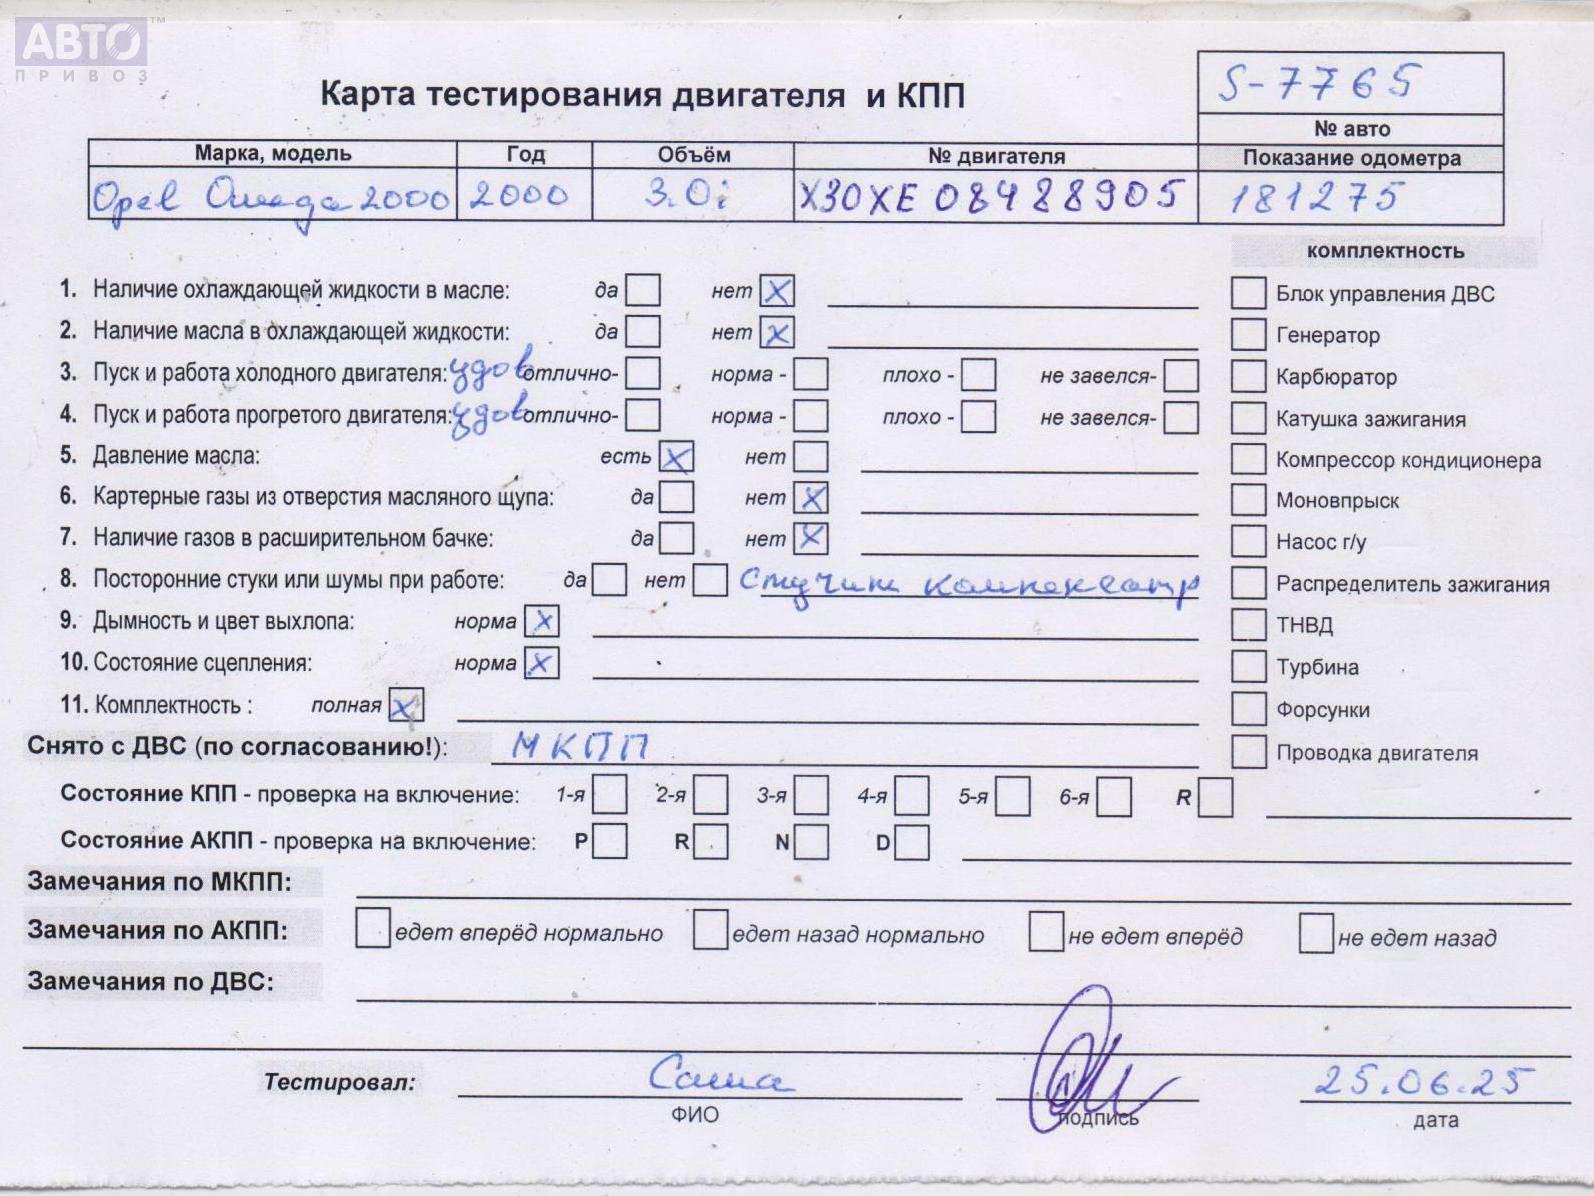 АВТО™
ПРИВОЗ
Карта тестирования двигателя и КПП
S-7765
№ авто
Марка, модель Год Объём № двигателя Показание одометра
Opel Омега 2000 2000 3.0i X30XE 08488905 181275
комплектность
1. Наличие охлаждающей жидкости в масле: да нет x
Блок управления ДВС
2. Наличие масла в охлаждающей жидкости: да нет x
Генератор
3. Пуск и работа холодного двигателя: удов отлично- норма - плохо - не завелся-
Карбюратор
4. Пуск и работа прогретого двигателя: удов отлично- норма - плохо - не завелся-
Катушка зажигания
5. Давление масла: есть x нет
Компрессор кондиционера
6. Картерные газы из отверстия масляного щупа: да нет x
Моновпрыск
7. Наличие газов в расширительном бачке: да нет x
Насос г/у
8. Посторонние стуки или шумы при работе: да нет Стучит компенсатр
Распределитель зажигания
9. Дымность и цвет выхлопа: норма x
ТНВД
10. Состояние сцепления: норма x
Турбина
11. Комплектность : полная x
Форсунки
Снято с ДВС (по согласованию!): МКПП
Проводка двигателя
Состояние КПП - проверка на включение: 1-я 2-я 3-я 4-я 5-я 6-я R
Состояние АКПП - проверка на включение: P R N D
Замечания по МКПП:
Замечания по АКПП: едет вперёд нормально едет назад нормально не едет вперёд не едет назад
Замечания по ДВС:
Тестировал: Саша 25.06.25
ФИО подпись дата